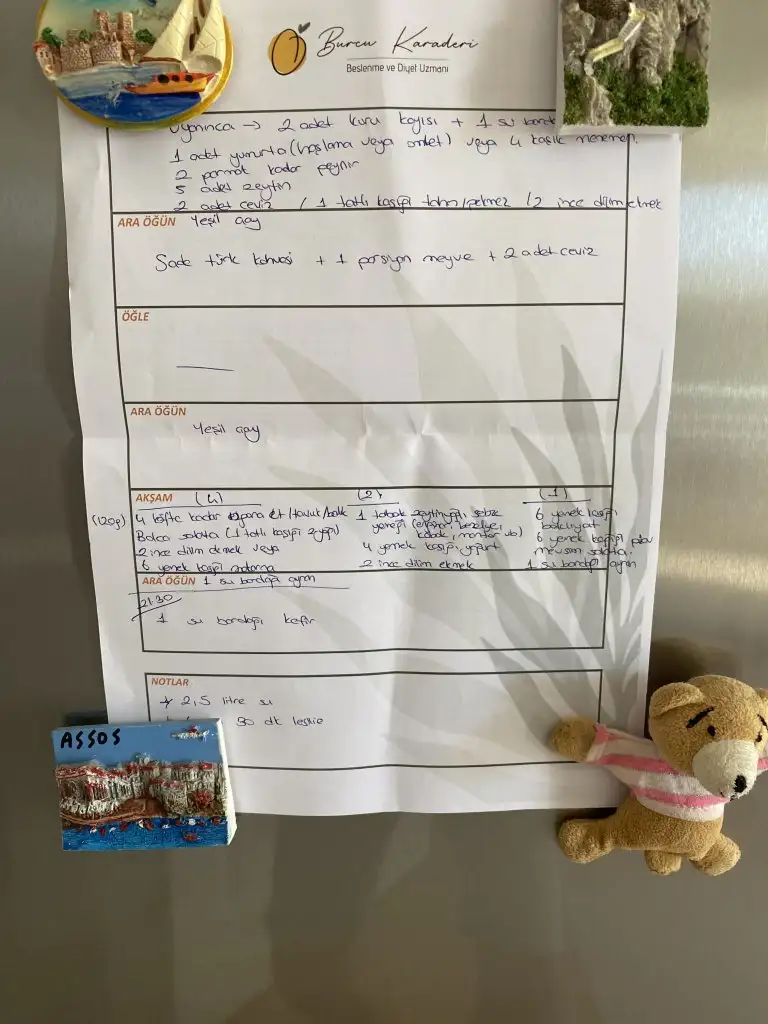 Burcu Karaderi
Beslenme ve Diyet Uzmanı
Uyanınca → 2 adet kuru kayısı + 1 su barda
1 adet yumurta (haşlama veya omlet) veya 4 kaşık menemen.
2 parmak kadar peynir
5 adet zeytin
2 adet ceviz / 1 tatlı kaşığı tahin/pekmez / 2 ince dilim ekmek
ARA ÖĞÜN Yeşil çay
Sade türk kahvesi + 1 porsiyon meyve + 2 adet ceviz
ÖĞLE
ARA ÖĞÜN
Yeşil çay
AKŞAM (4) (2) (1)
(120g) 4 köfte kadar ızgara et/tavuk/balık
Bolca salata (1 tatlı kaşığı z.yağı)
2 ince dilim ekmek veya
6 yemek kaşığı makarna
1 su bardağı ayran
1 tabak zeytinyağlı sebze
yemeği (enginar, bezelye,
kabak, mantar vb)
4 yemek kaşığı yoğurt
2 ince dilim ekmek
6 yemek kaşığı
bakliyat
6 yemek kaşığı pilav
mevsim salata.
1 su bardağı ayran
ARA ÖĞÜN
21.30
1 su bardağı kefir
NOTLAR
2,5 litre su
30 dk
ASSOS